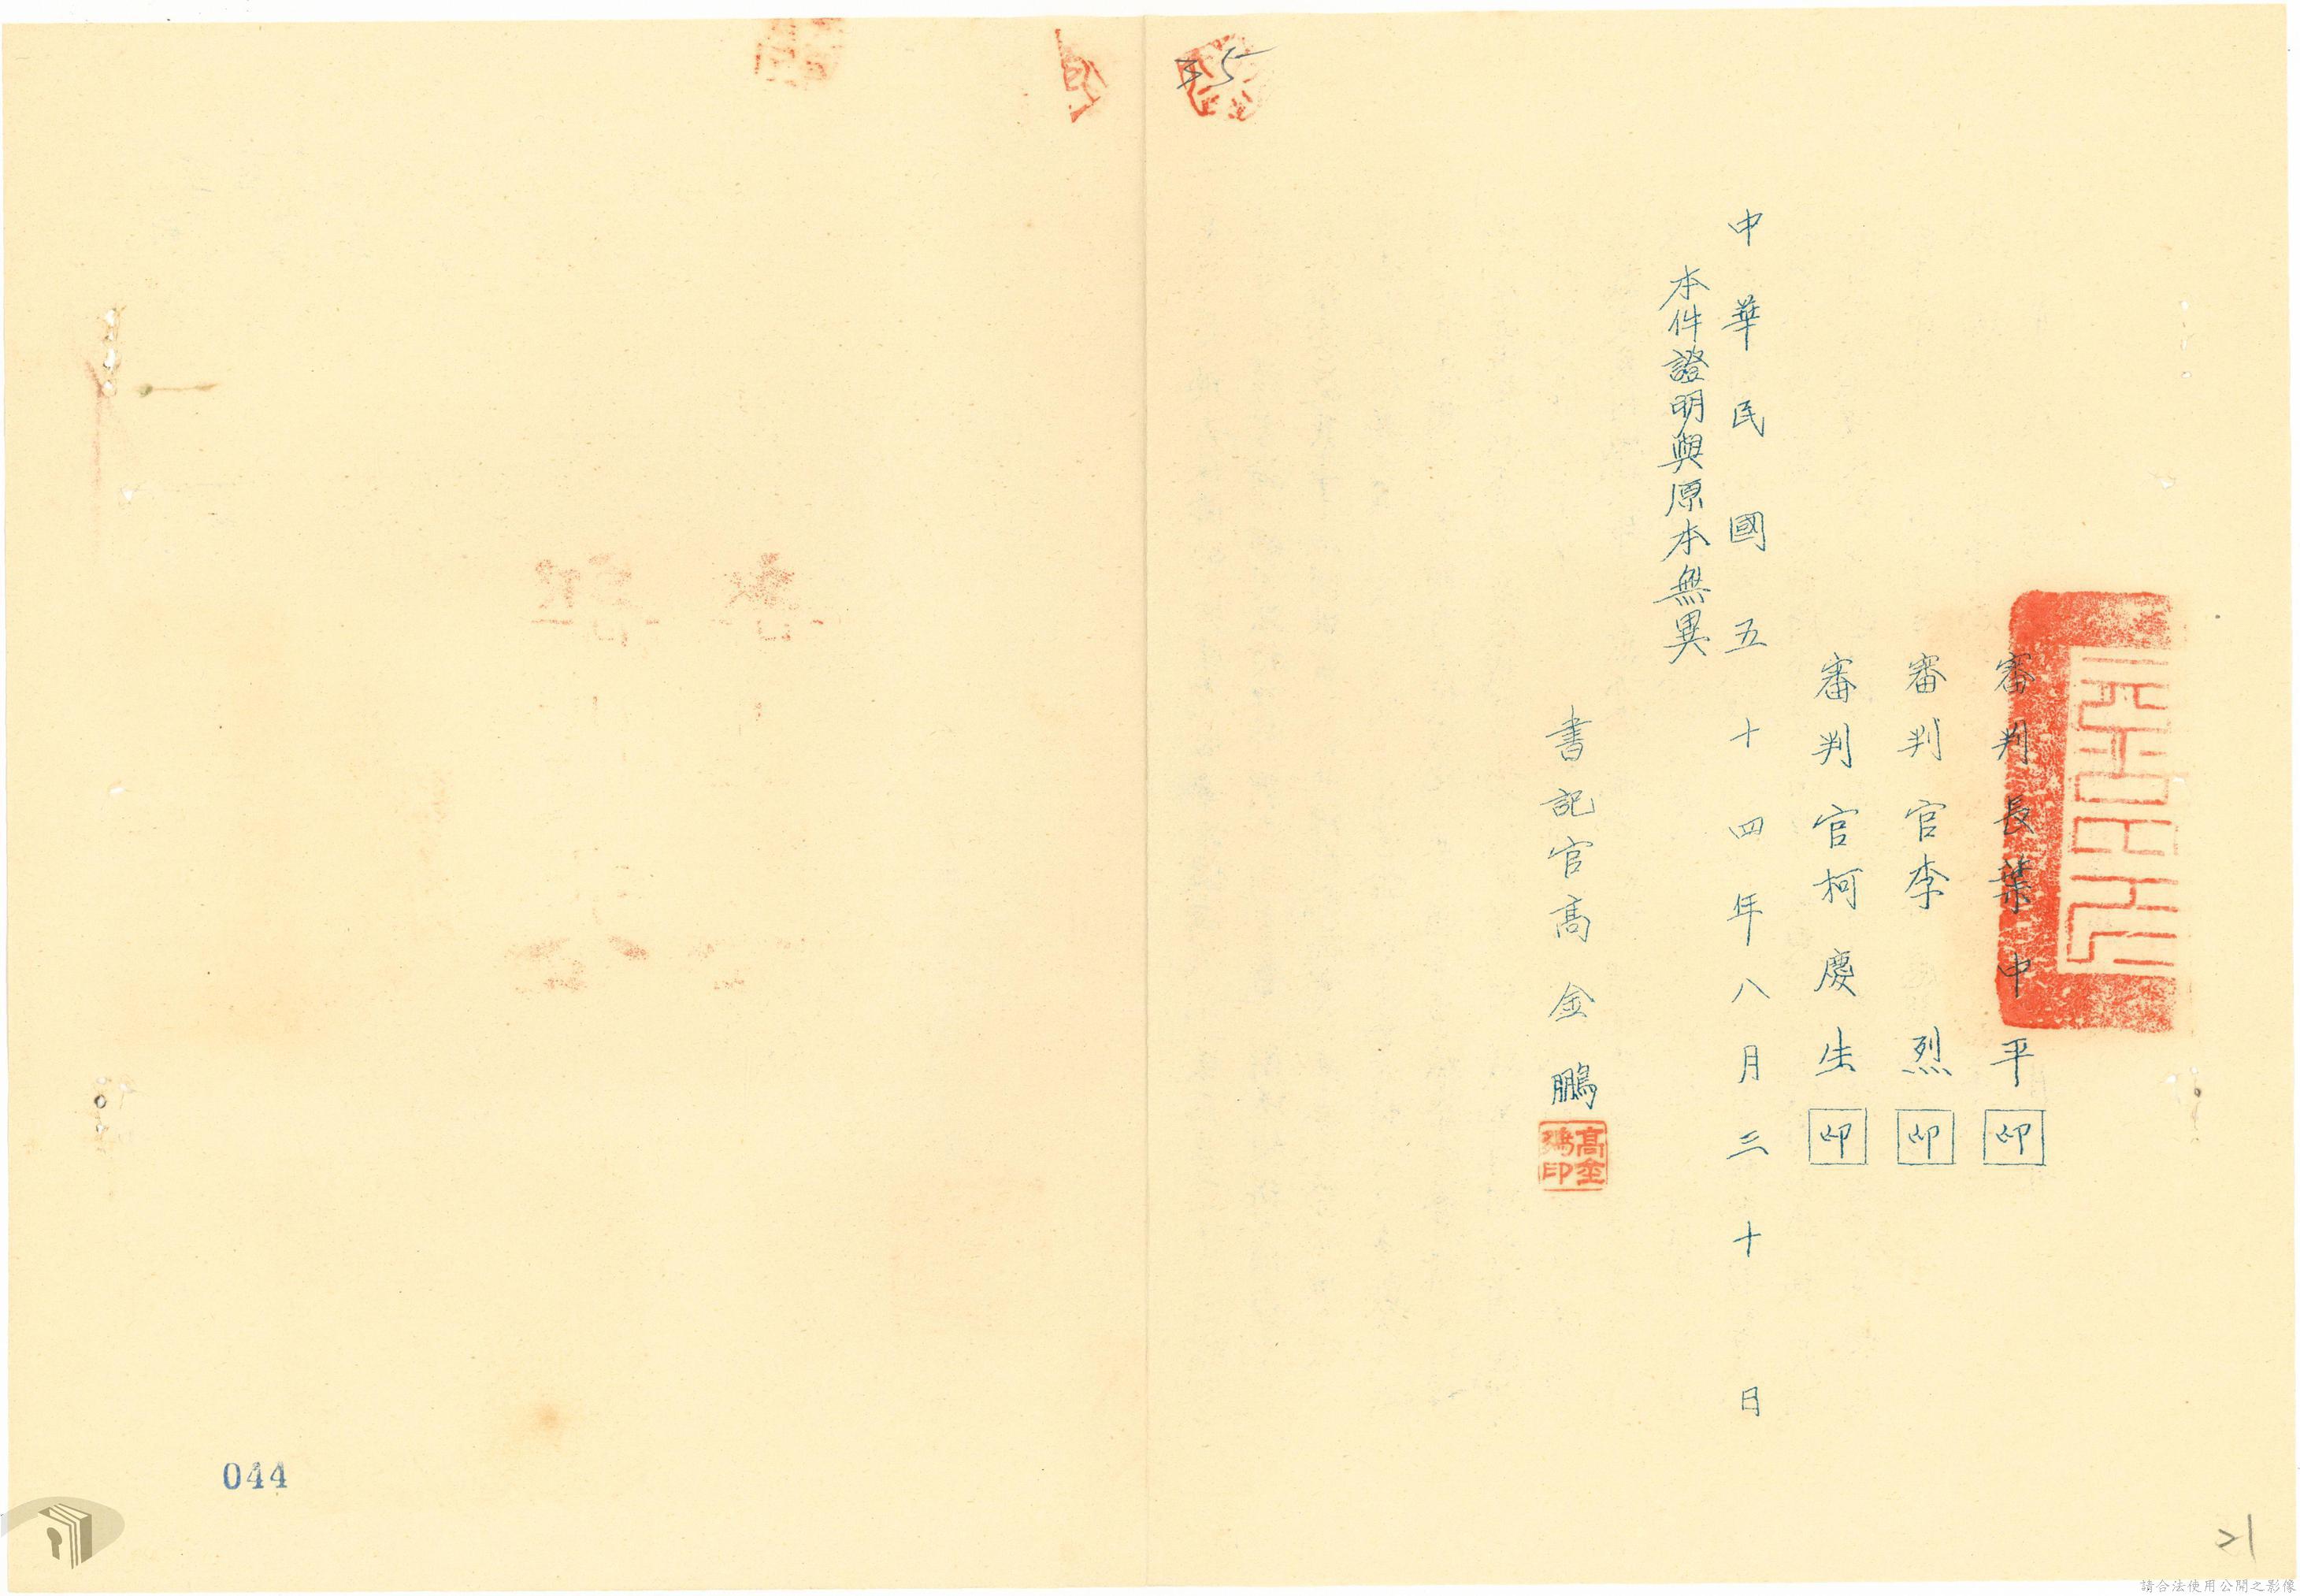 審判長葉中平印
審判官李烈印
審判官柯慶生印
中華民國五十四年八月三十日
本件證明與原本無異
書記官高金鵬
高金鵬印
35
044
21
請合法使用公開之影像